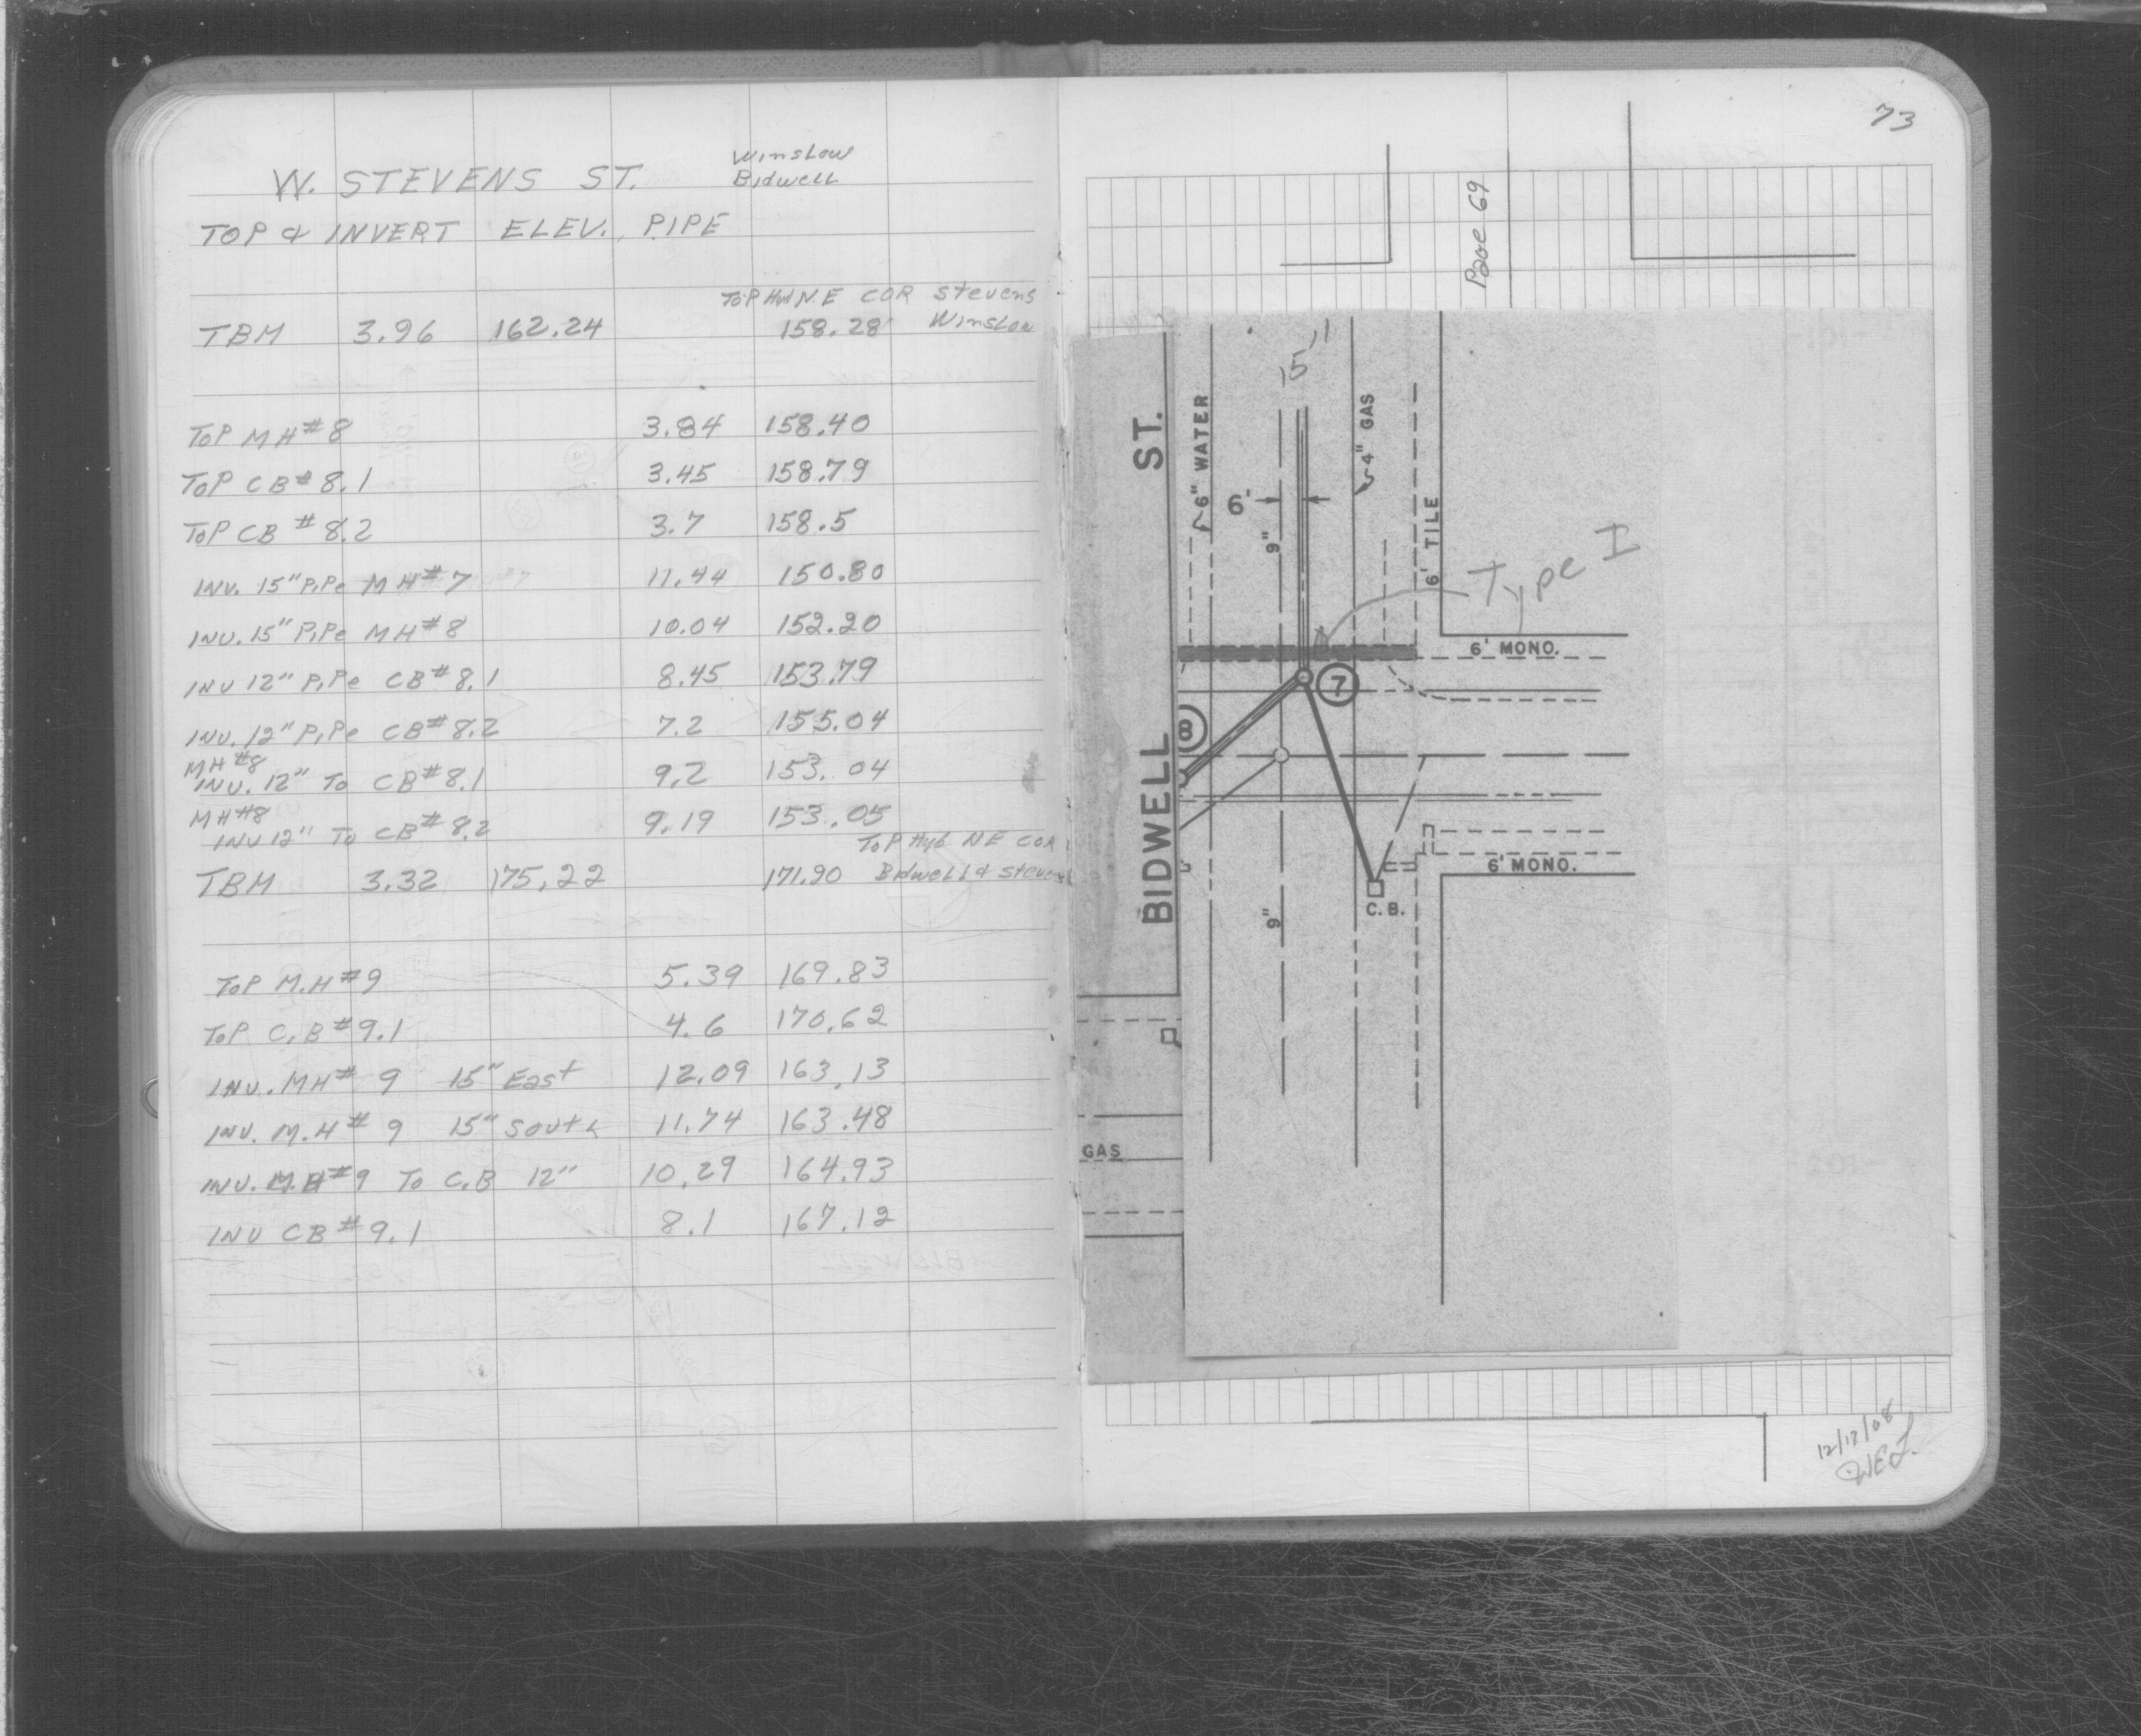 W. STEVENS ST. Winslow
Bidwell
TOP & INVERT ELEV. PIPE
TOP Hyd N.E COR Stevens
TBM 3.96 162.24 158.28 Winslow
TOP MH#8 3.84 158.40
TOP CB#8.1 3.45 158.79
TOP CB #8.2 3.7 158.5
INV. 15" PIPe MH#7 11.44 150.80
INV. 15" PIPe MH#8 10.04 152.20
INV 12" PIPe CB#8.1 8.45 153.79
INV. 12" PIPe CB#8.2 7.2 155.04
MH#8
INV. 12" To CB#8.1 9.2 153.04
MH#8
INV 12" To CB#8.2 9.19 153.05
TOP Hyd NE COR
TBM 3.32 175.22 171.90 Bidwell & Stevens
TOP M.H#9 5.39 169.83
TOP C.B#9.1 4.6 170.62
INV. MH# 9 15" East 12.09 163.13
INV. M.H# 9 15" South 11.74 163.48
INV. M.H#9 To C.B 12" 10.29 164.93
INV CB#9.1 8.1 167.12
73
Page 69
15"
BIDWELL ST.
6" WATER
4" GAS
6'
9"
6' TILE
Type I
6' MONO.
7
8
6' MONO.
C.B.
9"
GAS
12/17/08